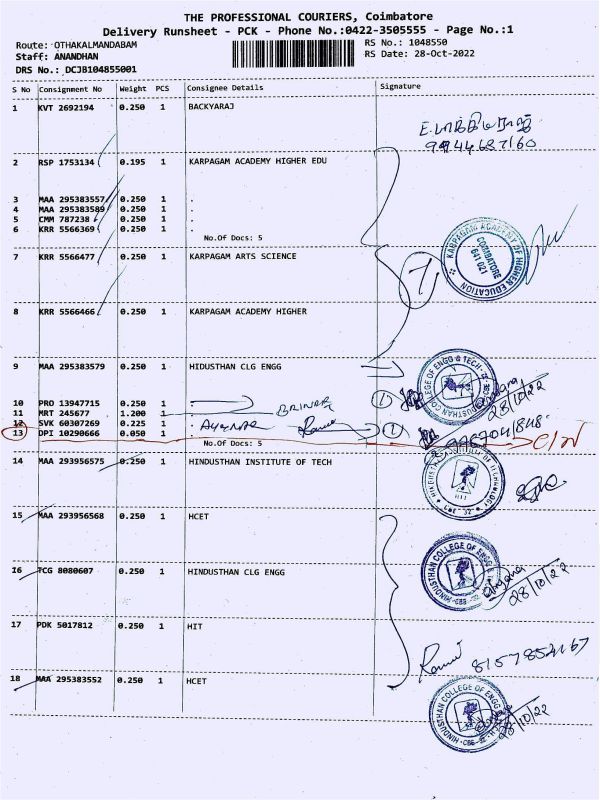 THE PROFESSIONAL COURIERS, Coimbatore
Delivery Runsheet - PCK - Phone No.:0422-3505555 - Page No.:1
Route: OTHAKALMANDABAM RS No.: 1048550
Staff: ANANDHAN RS Date: 28-Oct-2022
DRS No.: DCJB104855001
S No Consignment No Weight PCS Consignee Details Signature
1 KVT 2692194 0.250 1 BACKYARAJ
2 RSP 1753134 0.195 1 KARPAGAM ACADEMY HIGHER EDU
3 MAA 295383557 0.250 1 .
4 MAA 295383589 0.250 1 .
5 CMM 787238 0.250 1 .
6 KRR 5566369 0.250 1 .
No.Of Docs: 5
7 KRR 5566477 0.250 1 KARPAGAM ARTS SCIENCE
KARPAGAM ACADEMY OF HIGHER EDUCATION
COIMBATORE
641 021
8 KRR 5566466 0.250 1 KARPAGAM ACADEMY HIGHER
9 MAA 295383579 0.250 1 HIDUSTHAN CLG ENGG
28/10/22
10 PRO 13947715 0.250 1 .
11 MRT 245677 1.200 1
12 SVK 60307269 0.225 1 .
13 DPI 10290666 0.050 1 .
No.Of Docs: 5
14 MAA 293956575 0.250 1 HINDUSTHAN INSTITUTE OF TECH
15 MAA 293956568 0.250 1 HCET
16 TCG 8080607 0.250 1 HINDUSTHAN CLG ENGG
HINDUSTHAN COLLEGE OF ENGG
28/10/22
17 PDK 5017812 0.250 1 HIT
18 MAA 295383552 0.250 1 HCET
HINDUSTHAN COLLEGE OF ENGG
28/10/22